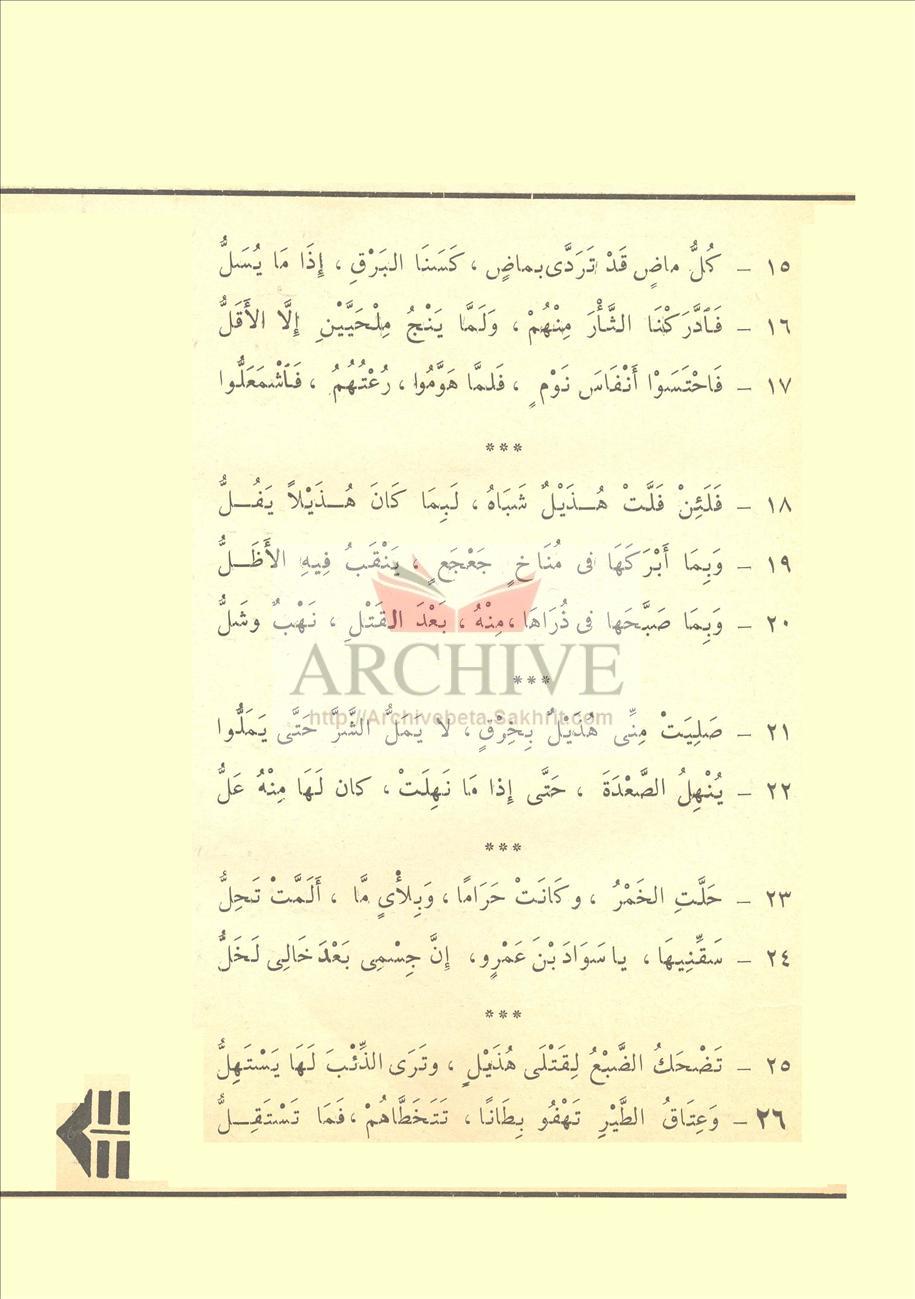 ١٥ – كُلُّ ماضٍ قَدْ تَرَدَّى بماضٍ ، كَسَنَا البَرْقِ ، إِذَا مَا يُسَلُّ
١٦ – فَٱدَّرَكْنَا الثَّأْرَ مِنْهُمْ ، وَلَمَّا يَنْجُ مِلْحَيَّيْنِ إِلَّا الأَقَلُّ
١٧ – فَاحْتَسَوْا أَنْفَاسَ نَوْمٍ ، فَلمَّا هَوَّمُوا ، رُعْتُهُمُ ، فَٱشْمَعَلُّوا
***
١٨ – فَلَئِنْ فَلَّتْ هُـذَيْلٌ شَبَاهُ ، لَبِمَا كَانَ هُـذَيْلاً يَفُـلُّ
١٩ – وَبِمَا أَبْرَكَهَا فى مُنَاخٍ جَعْجَعٍ ، يَنْقَبُ فِيهِ الأَظَـلُّ
٢٠ – وَبِمَا صَبَّحَها فى ذُرَاهَا ، مِنْهُ ، بَعْدَ القَتْلِ ، نَهْبٌ وشَلُّ
ARCHIVE
***
http://Archivebeta.Sakhrit.com
٢١ – صَلِيَتْ مِنِّى هُذَيْلٌ بِخِرْقٍ ، لا يَمَلُّ الشَّرَّ حَتَّى يَمَلُّوا
٢٢ – يُنْهِلُ الصَّعْدَةَ ، حَتَّى إِذا مَا نَهِلَتْ ، كان لَهَا مِنْهُ عَلُّ
***
٢٣ – حَلَّتِ الخَمْرُ ، وكَانَتْ حَرَامًا ، وَبِلأْىٍ مَّا ، أَلَمَّتْ تَحِلُّ
٢٤ – سَقِّنِيهَا ، يا سَوَادَ بْنَ عَمْرٍو ، إِنَّ جِسْمِى بَعْدَ خَالِى لَخَلُّ
***
٢٥ – تَضْحَكُ الضَّبْعُ لِقَتْلَى هُذَيْلٍ ، وتَرَى الذِّئْبَ لَهَا يَسْتَهِلُّ
٢٦ – وَعِتَاقُ الطَّيْرِ تَهْفُو بِطَانًا ، تَتَخَطَّاهُمْ ، فَمَا تَسْتَقِـلُّ